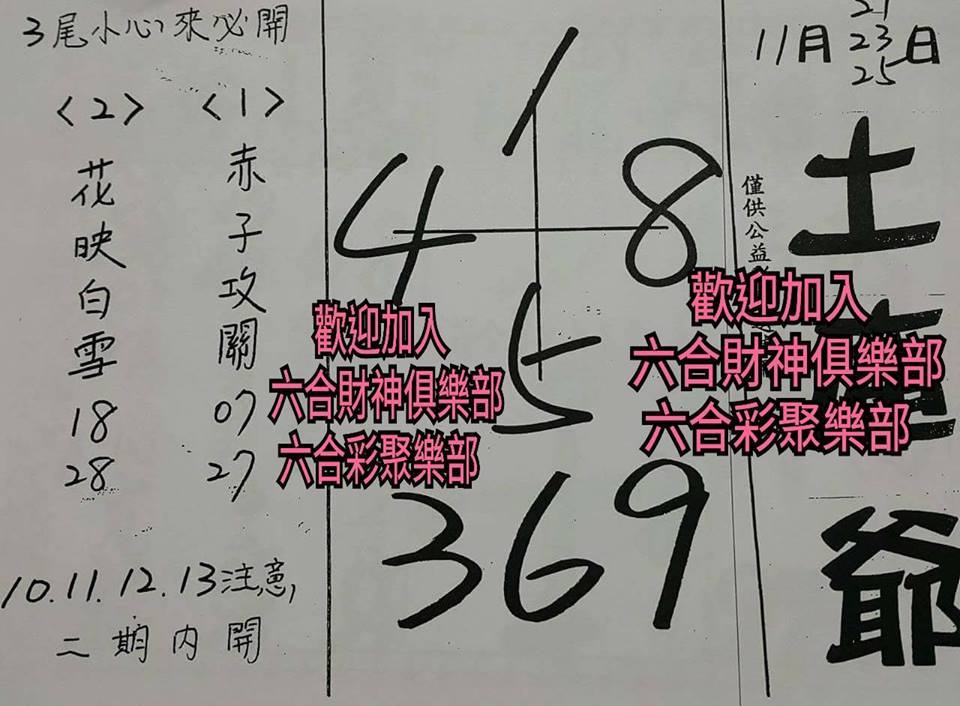 11月 21 23 25 日
土
爺
僅供公益
1
4 8
5
369
3尾小心來必開
<1>
赤子攻關
07
27
<2>
花映白雪
18
28
10.11.12.13注意,
二期內開
歡迎加入
六合財神俱樂部
六合彩聚樂部
歡迎加入
六合財神俱樂部
六合彩聚樂部